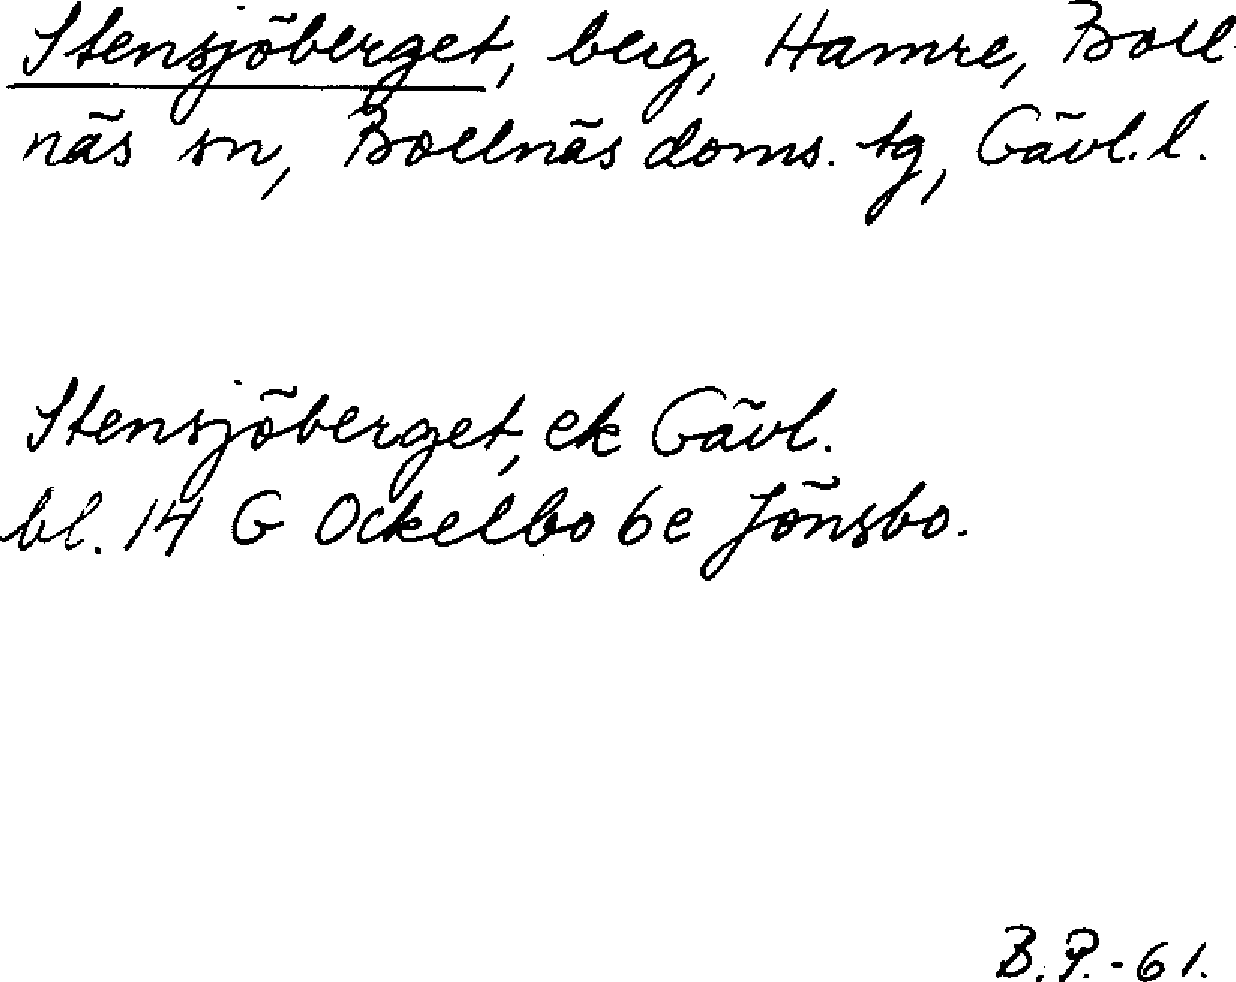 Stensjöberget, berg, Hamre, Boll
näs sn, Bollnäs doms. tg, Gävl. l.
Stensjöberget, ek Gävl.
bl. 14 G Ockelbo 6e Jönsbo.
B.P.-61.